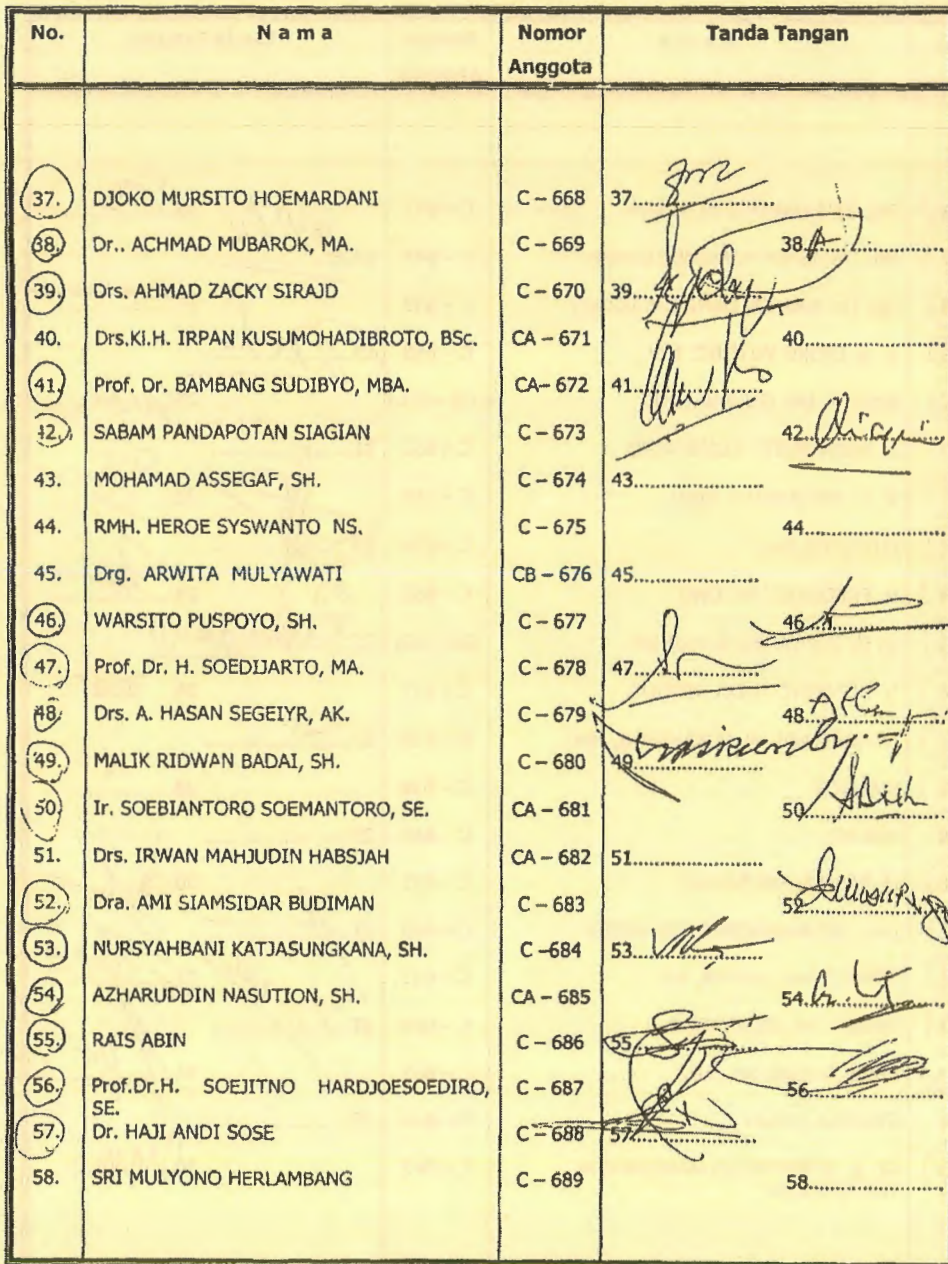 No. Nama Nomor Anggota Tanda Tangan
37. DJOKO MURSITO HOEMARDANI C – 668 37....................
38. Dr.. ACHMAD MUBAROK, MA. C – 669 38....................
39. Drs. AHMAD ZACKY SIRAJD C – 670 39....................
40. Drs.KI.H. IRPAN KUSUMOHADIBROTO, BSc. CA – 671 40....................
41. Prof. Dr. BAMBANG SUDIBYO, MBA. CA– 672 41....................
42. SABAM PANDAPOTAN SIAGIAN C – 673 42....................
43. MOHAMAD ASSEGAF, SH. C – 674 43....................
44. RMH. HEROE SYSWANTO NS. C – 675 44....................
45. Drg. ARWITA MULYAWATI CB – 676 45....................
46. WARSITO PUSPOYO, SH. C – 677 46....................
47. Prof. Dr. H. SOEDIJARTO, MA. C – 678 47....................
48. Drs. A. HASAN SEGEIYR, AK. C – 679 48....................
49. MALIK RIDWAN BADAI, SH. C – 680 49....................
50. Ir. SOEBIANTORO SOEMANTORO, SE. CA – 681 50....................
51. Drs. IRWAN MAHJUDIN HABSJAH CA – 682 51....................
52. Dra. AMI SIAMSIDAR BUDIMAN C – 683 52....................
53. NURSYAHBANI KATJASUNGKANA, SH. C –684 53....................
54. AZHARUDDIN NASUTION, SH. CA – 685 54....................
55. RAIS ABIN C – 686 55....................
56. Prof.Dr.H. SOEJITNO HARDJOESOEDIRO, C – 687 56....................
SE.
57. Dr. HAJI ANDI SOSE C – 688 57....................
58. SRI MULYONO HERLAMBANG C – 689 58....................